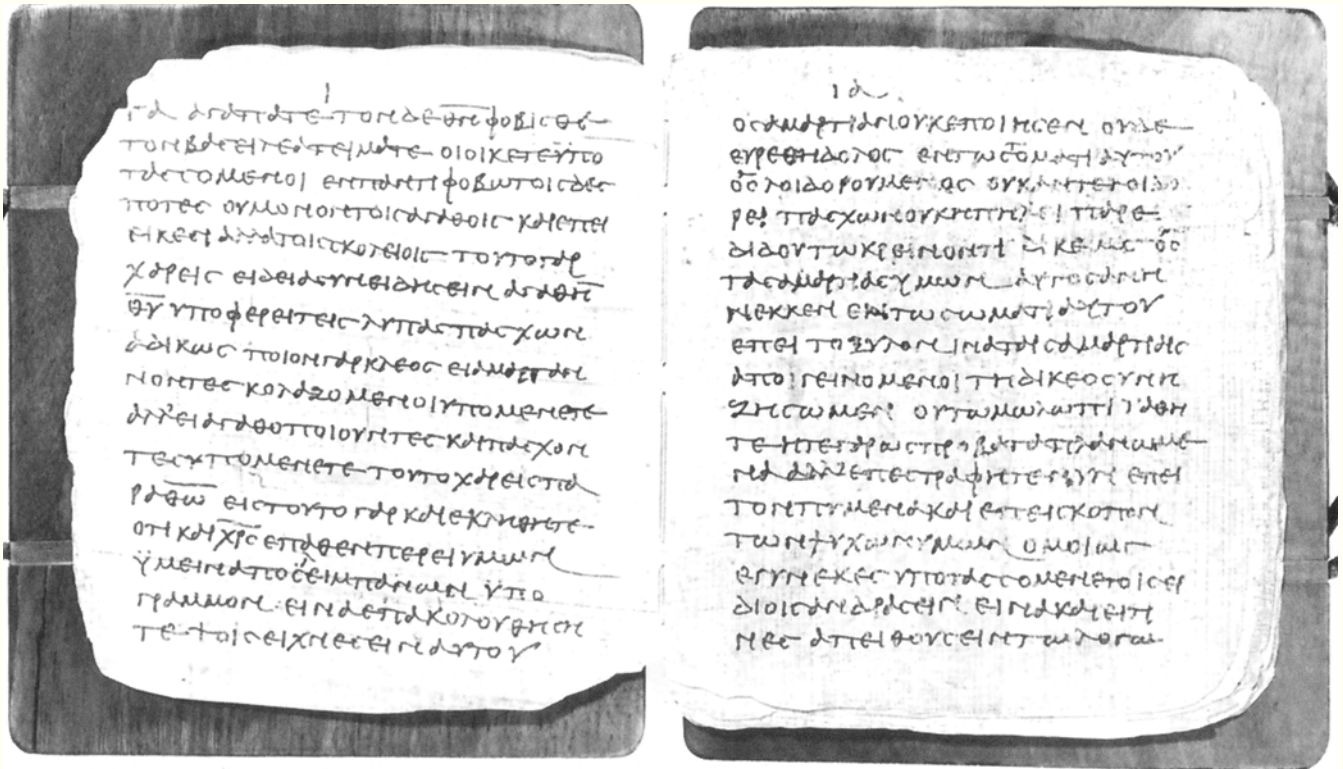 ι
τα αγαπατε τον δε θ̅ν̅ φοβισθε
τον βασειλεα τειματε οι οικετε ϋπο
τασσομενοι εν παντι φοβω τοις δεσ
ποτες ου μωνον τοις αγαθοις και επει
εικεσι αλλα τοις σκολειοις τουτο γαρ
χαρεις ει δεια συνειδησειν αγαθην
θ̅υ̅ υποφερει τεις λυπας πασχων
αδικως ποιον γαρ κλεος ει αμαρτα
νοντες κολαζομενοι υπομενετε
αλλ ει αγαθοποιουντες και πασχον
τες υπομενετε τουτο χαρεις πα
ρα θ̅ω̅ εις τουτο γαρ και εκληθητε
οτι και χ̅ρ̅ς̅ επαθεν περει υμων
ϋμειν απολειμπανων ϋπο
γραμμον εινα επακολουθηση
τε τοις ειχνεσειν αυτου
ια
ος αμαρτιαν ουκ εποιησεν ουδε
ευρεθη δολος εν τω στοματι αυτου
ος λοιδορουμενος ουκ αντελοιδο
ρει πασχων ουκ ηπιλει παρε
διδου τω κρεινοντι δικεως ος
τας αμαρτιας υμων αυτος ανη
νεκκεν εν τω σωματι αυτου
επει το ξυλον ινα ταις αμαρτιαις
απογεινομενοι τη δικεοσυνη
ζησωμεν ου τω μωλωπι ιαθη
τε ητε γαρ ως προβατα πλανωμε
να αλλ επεστραφητε νυν επει
τον πυμενα και επεισκοπον
των ψυχων υμων ομοιως
γυνεκες υποτασσομενε τοις ει
διοις ανδρασειν εινα και ει τι
νες απειθουσειν τω λογω